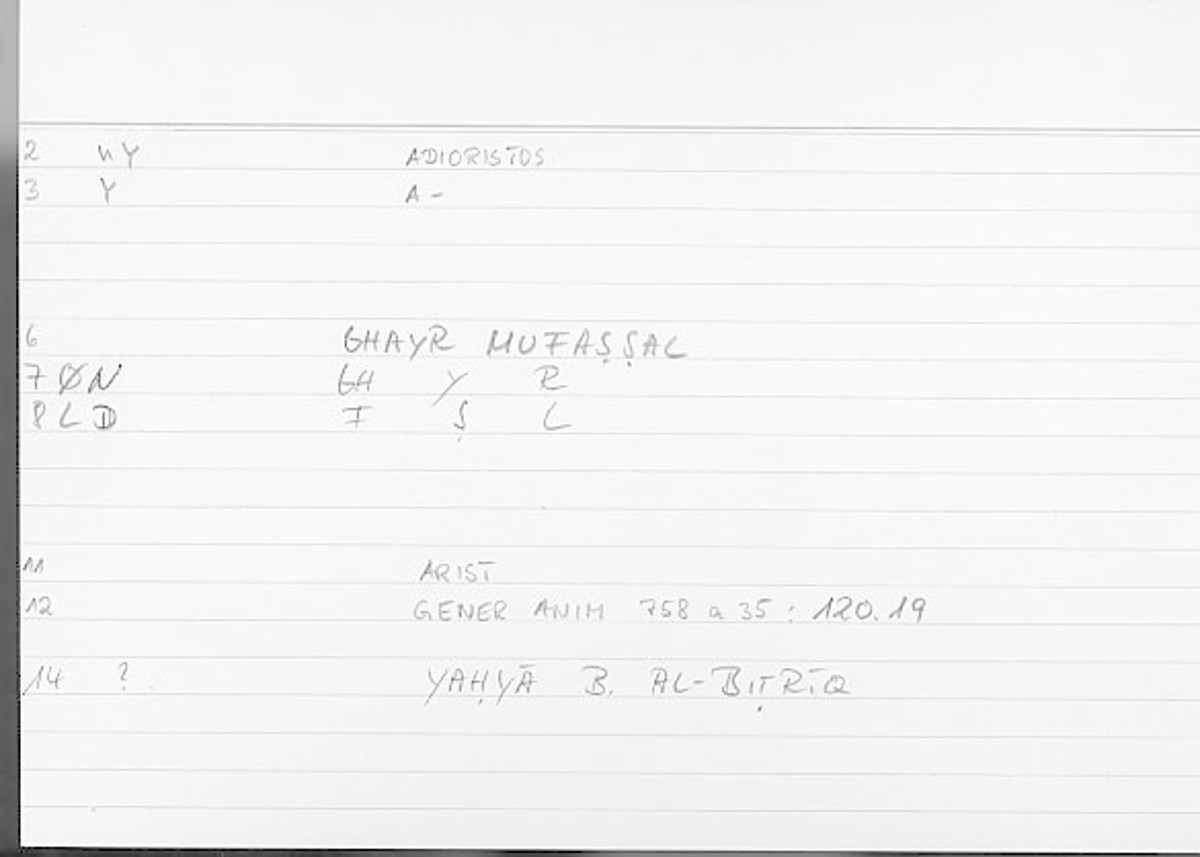 2 NY ADIORISTOS
3 Y A-
6 GHAYR MUFAṢṢAL
7 ØN GH Y R
8 L D F Ṣ L
11 ARIST
12 GENER ANIM 758 a 35 : 120.19
14 ? YAḤYĀ B. AL-BIṬRĪQ